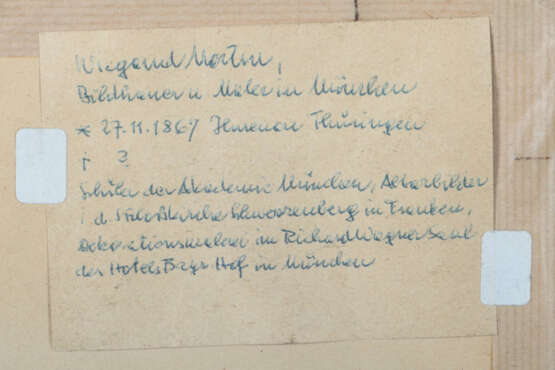 Wiegand Martin,
Bildhauer u Maler in München
* 27.11.1867 Ilmenau Thüringen
† ?
Schüler der Akademie München, Altarbilder
i d. Schwarzenberg in Franken,
Dekorationsmalerei im Richard Wagner Saal
des Hotels Bayr Hof in München